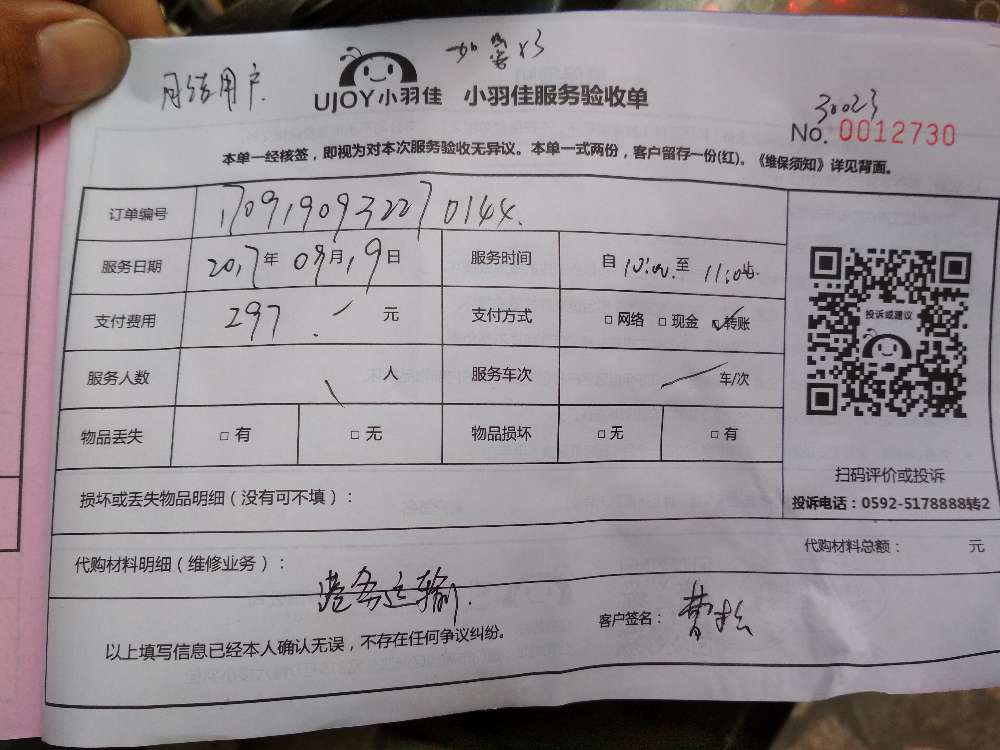 月结用户
UJOY小羽佳 小羽佳服务验收单
30023
No. 0012730
本单一经核签，即视为对本次服务验收无异议。本单一式两份，客户留存一份(红)。《维保须知》详见背面。
订单编号 170919093227 0144.
服务日期 2017年09月19日 服务时间 自10:00至
支付费用 297 元 支付方式 □网络 □现金 ☑转账
服务人数 人 服务车次 车/次
物品丢失 □有 □无 物品损坏 □无 □有
投诉或建议
扫码评价或投诉
投诉电话：0592-5178888转2
损坏或丢失物品明细（没有可不填）：
代购材料明细（维修业务）： 代购材料总额： 元
港务运输.
以上填写信息已经本人确认无误，不存在任何争议纠纷。 客户签名：